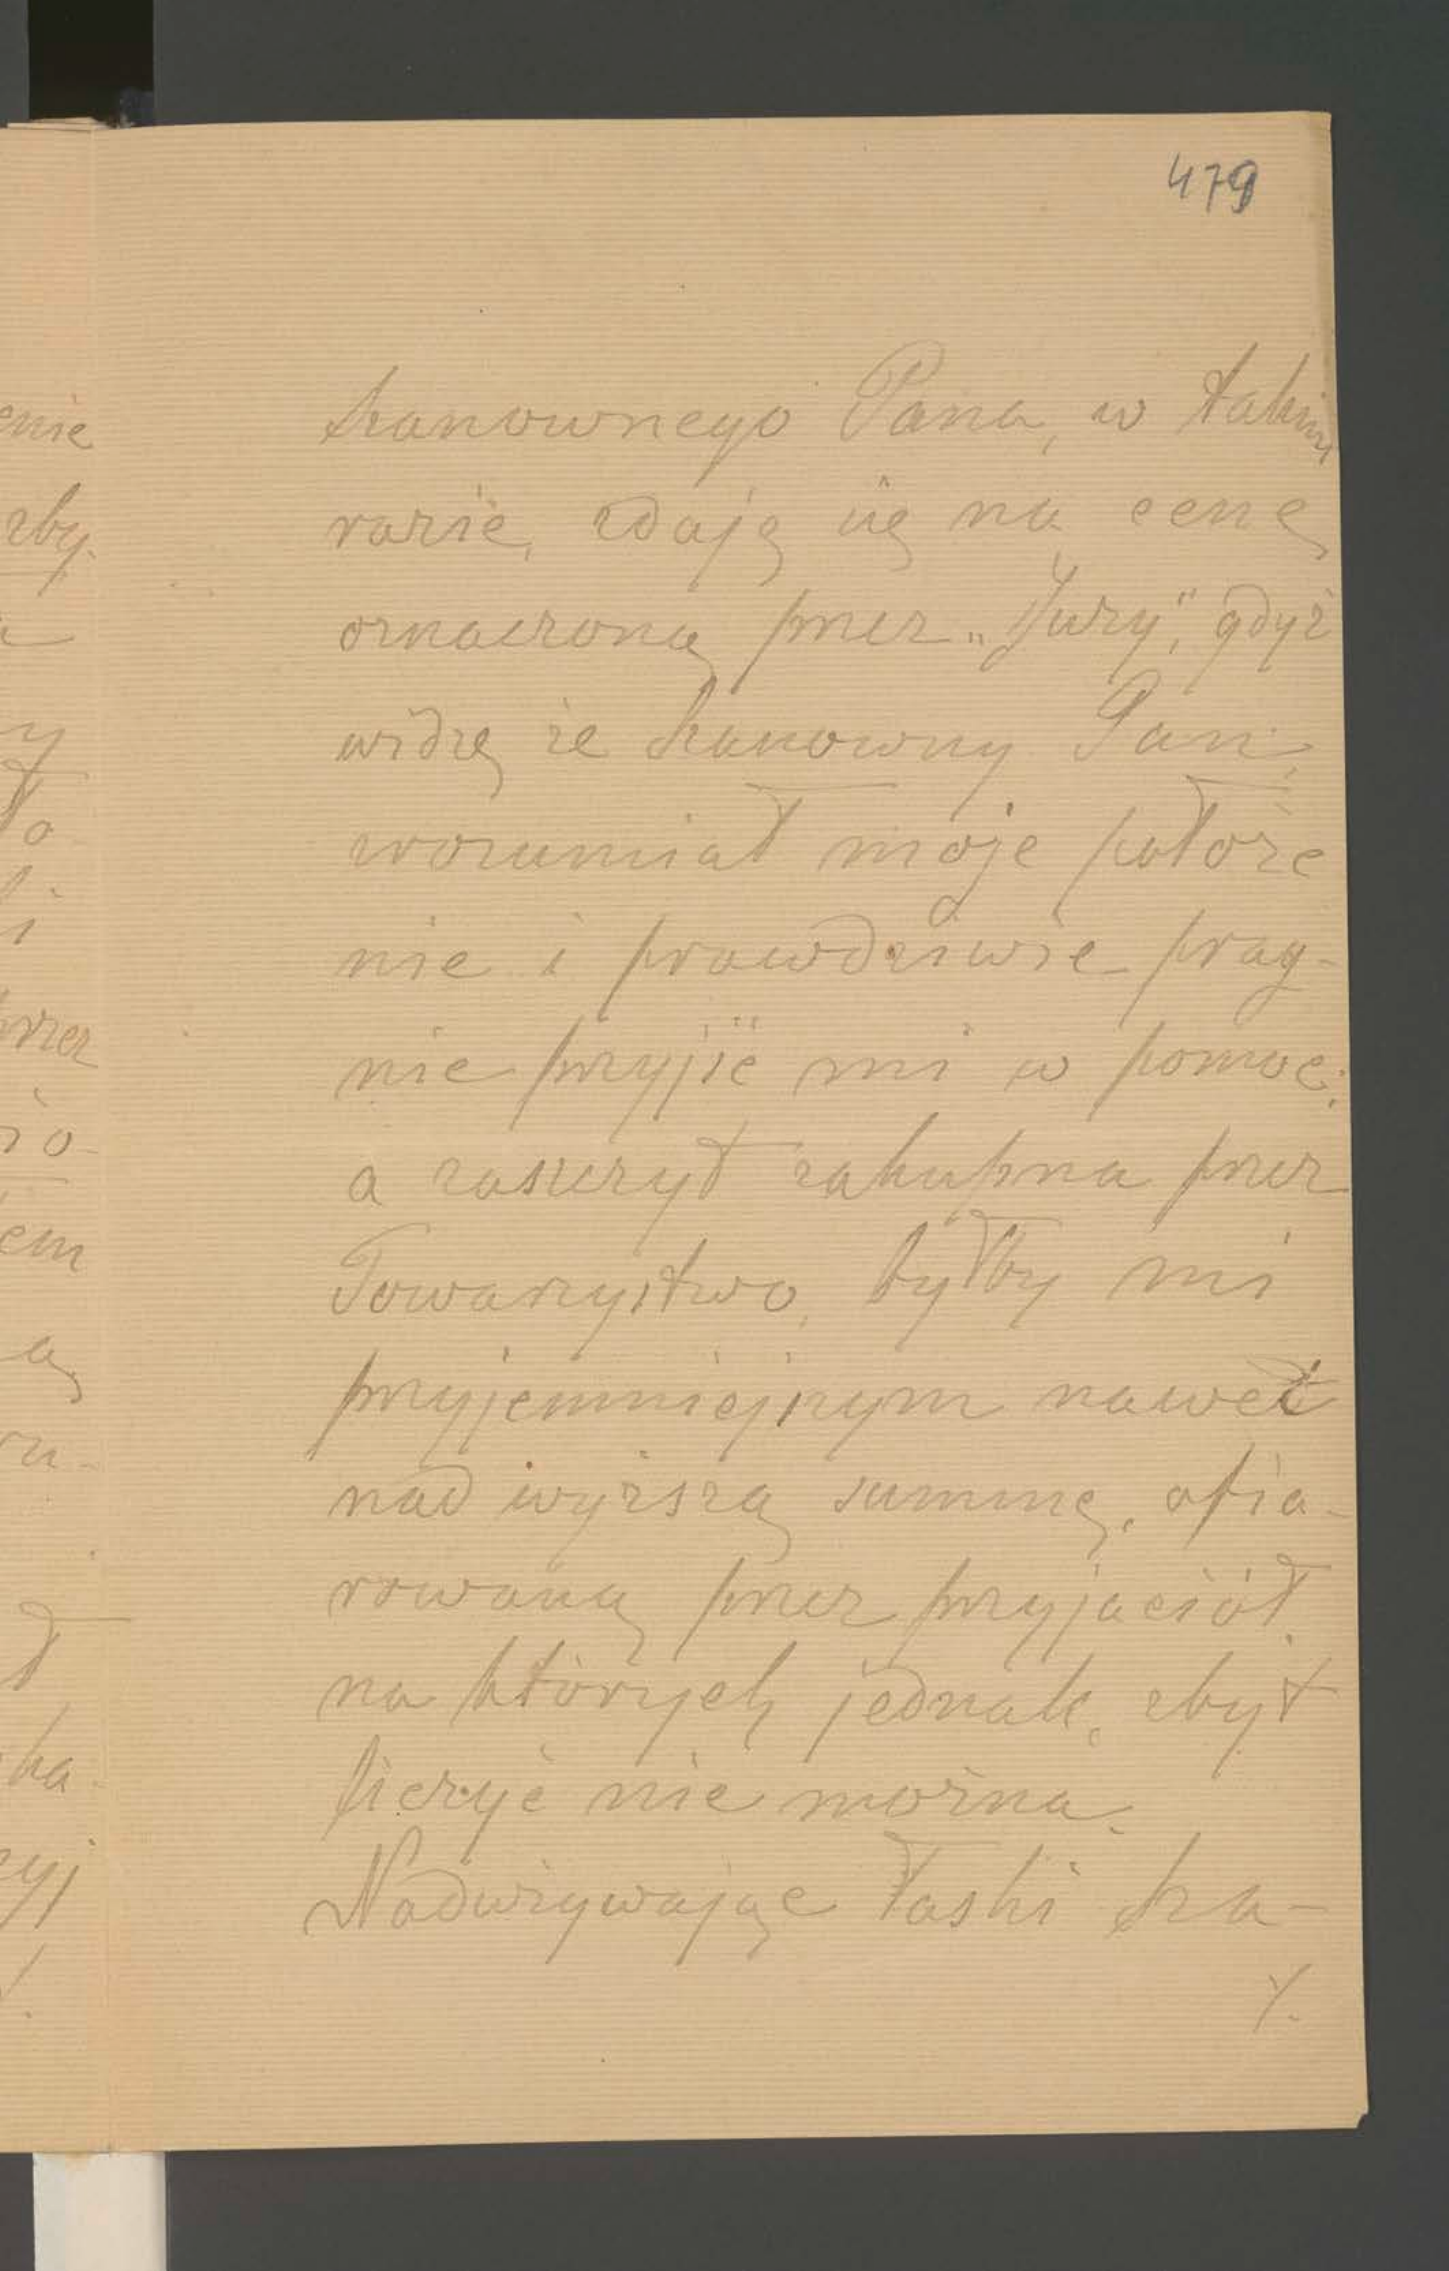 479
Szanownego Pana, w takim
razie, zdaję się na cenę
oznaczoną przez „Jury”, gdyż
widzę że Szanowny Pan,
zrozumiał moje położe
nie i prawdziwie prag-
nie przyjść mi w pomoc;
a zaszczyt zakupna przez
Towarzystwo, byłby mi
przyjemniejszym nawet
nad wyższą summę, ofia-
rowaną przez przyjaciół,
na których jednak, zbyt
liczyć nie można.
Nadużywając łaski Sza-
/.
enie
zby-
a
y
to
li
przez
io-
em
ą
zu-
ł
ha-
zyj
/.